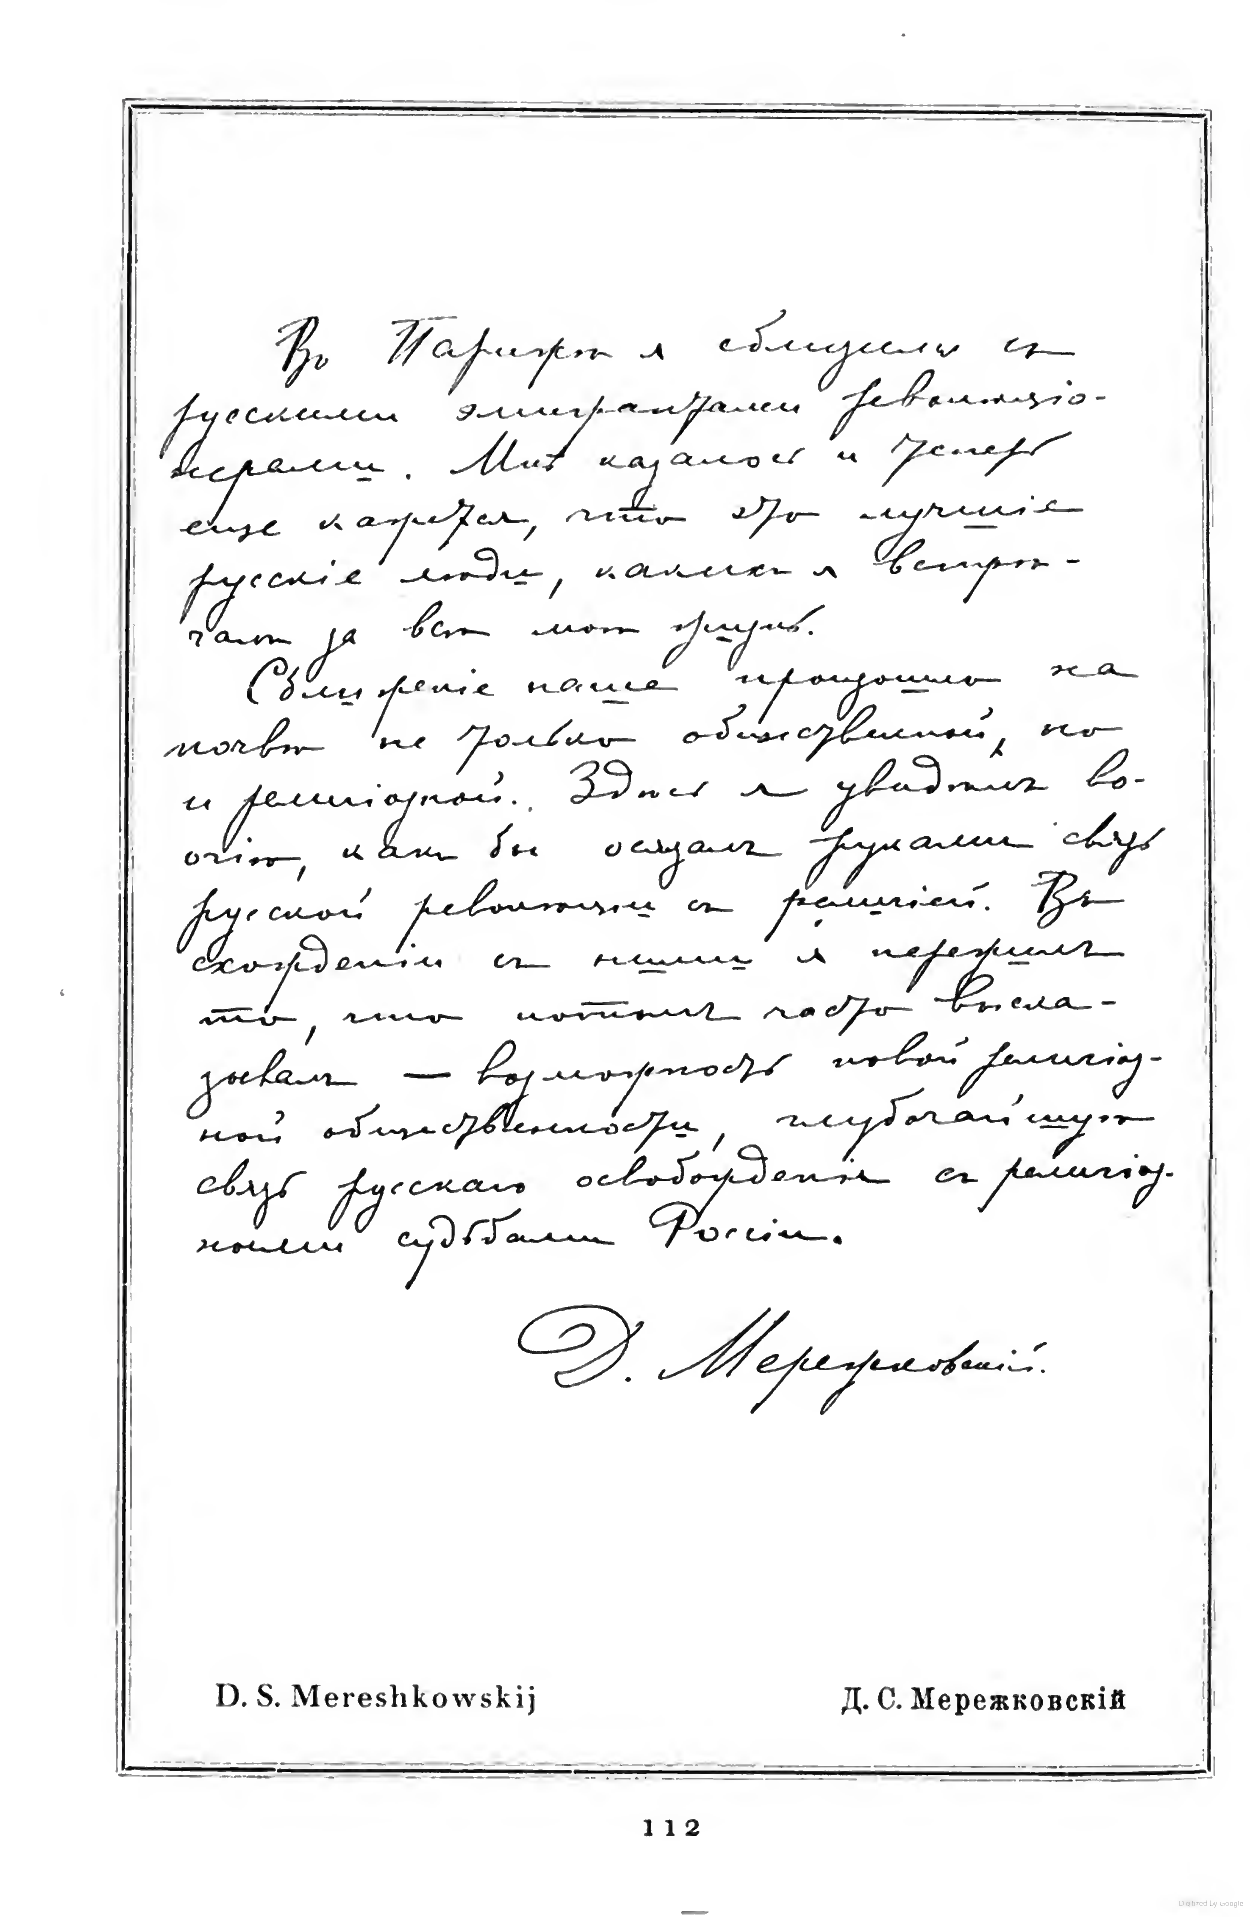 Въ Парижѣ я сблизился съ
русскими эмигрантами революціо-
нерами. Мнѣ казалось и теперь
еще кажется, что это лучшіе
русскіе люди, какихъ я встрѣ-
чалъ за всю мою жизнь.
Сближеніе наше произошло на
почвѣ не только общественной, но
и религіозной. Здѣсь я увидѣлъ во-
очію, какъ бы осязалъ руками связь
русской революціи съ религіей. Въ
схожденіи съ ними я пережилъ
то, что потомъ часто выска-
зывалъ — возможность новой религіоз-
ной общественности, глубочайшую
связь русскаго освобожденія съ религіоз-
ными судьбами Россіи.
Д. Мережковскій.
D. S. Mereshkowskij Д. С. Мережковскій
112
Digitized by Google